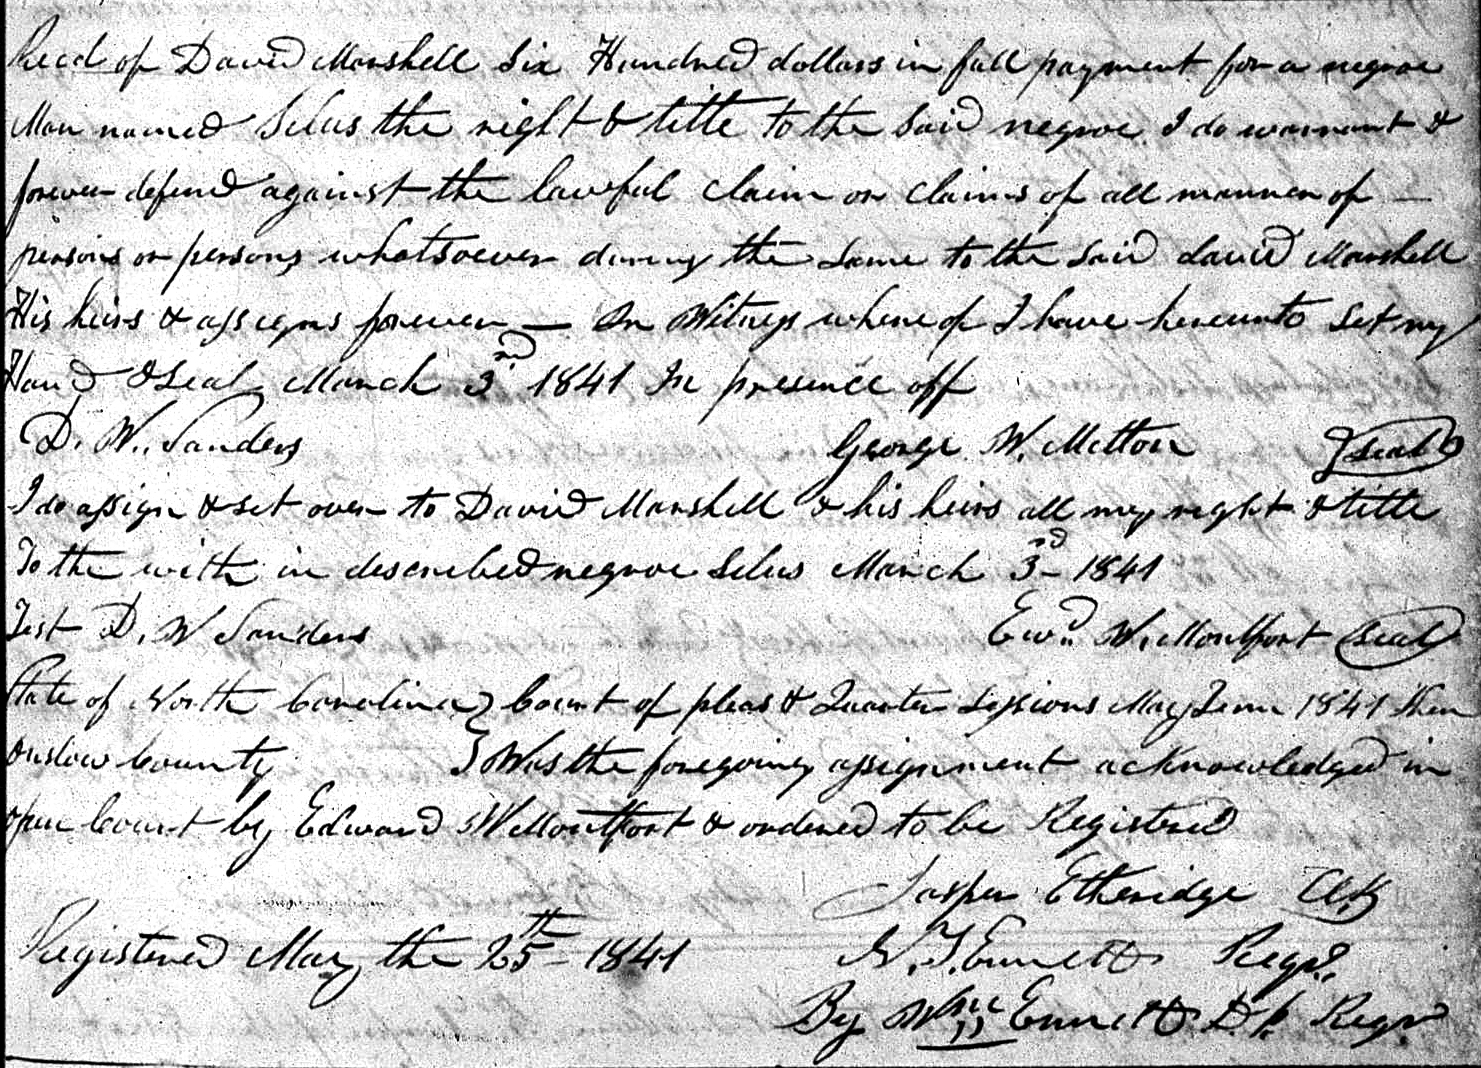 Recd of David Marshell Six Hundred dollars in full payment for a negroe
Man named Selus the right & title to the Said negroe I do warrant &
forever defend against the lawful Claim or Claims of all manner of —
persons or persons whatsoever during the Same to the Said david Marshell
His heirs & assigns forever — In Witness where of I have hereunto Set my
Hand & Seal March 3rd 1841 In presence off
D. W. Sanders George W. Mitton Seal
I do assign & set over to David Marshell & his heirs all my right & title
To the with in described negroe Selus March 3rd 1841
Test D. W Sanders Ewd. W. Montfort Seal
State of North Carolina } Court of pleas & Quarter Sessions May Term 1841 then
Onslow County } Was the foregoing assignment acknowledged in
open Court by Edward W Montfort & ordered to be Registered
Jasper Etheridge Clk
Registered May the 25th 1841 N. T. Ennett Regr.
By Wm Ennett Dp. Regr